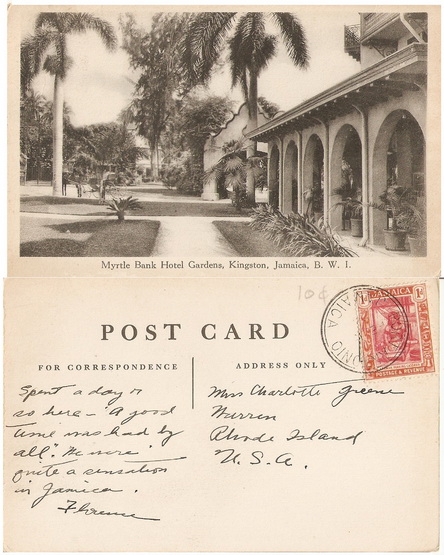 Myrtle Bank Hotel Gardens, Kingston, Jamaica, B. W. I.
10¢
POST CARD
FOR CORRESPONDENCE
ADDRESS ONLY
Spent a day or
so here - "A good
time was had by
all." We were
quite a sensation
in Jamaica.
Florence
Miss Charlotte Greene
Warren
Rhode Island
U. S. A.
JAMAICA
POSTAGE & REVENUE
JAMAICA
ONIO